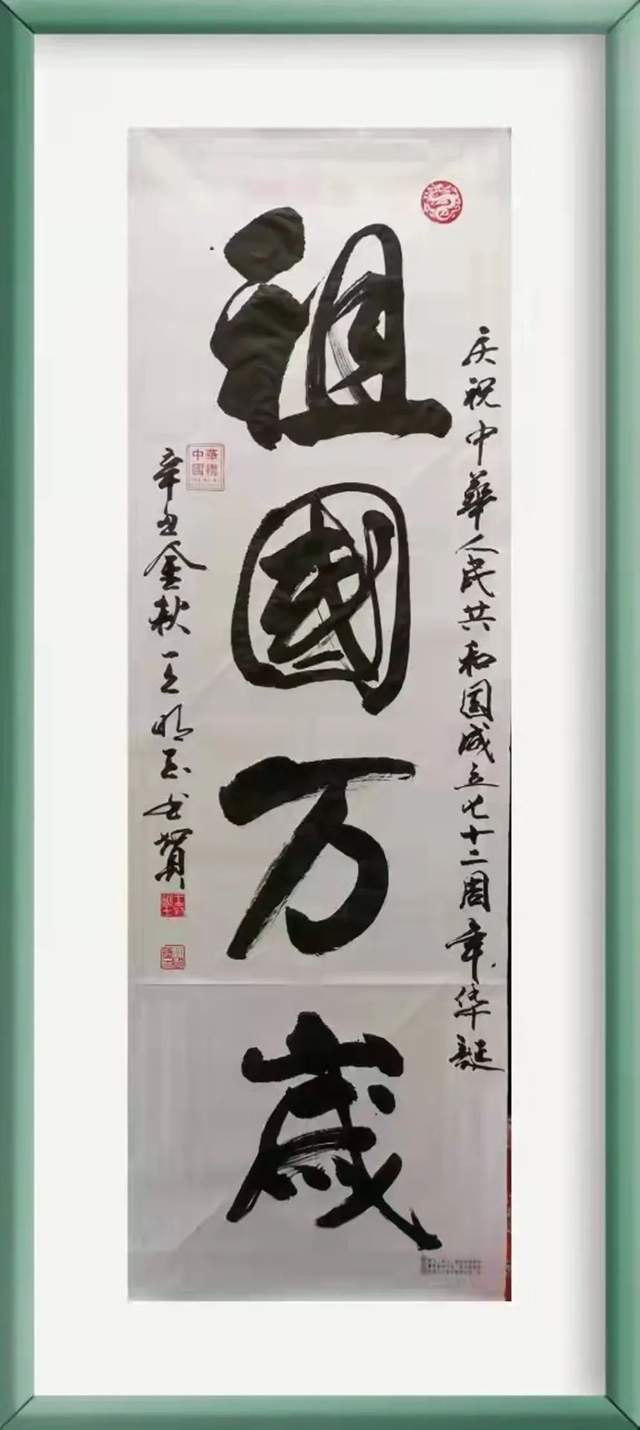 庆祝中華人民共和国成立七十二周年华誕
祖國万歲
辛丑金秋王明玉书贺
中華
國禮